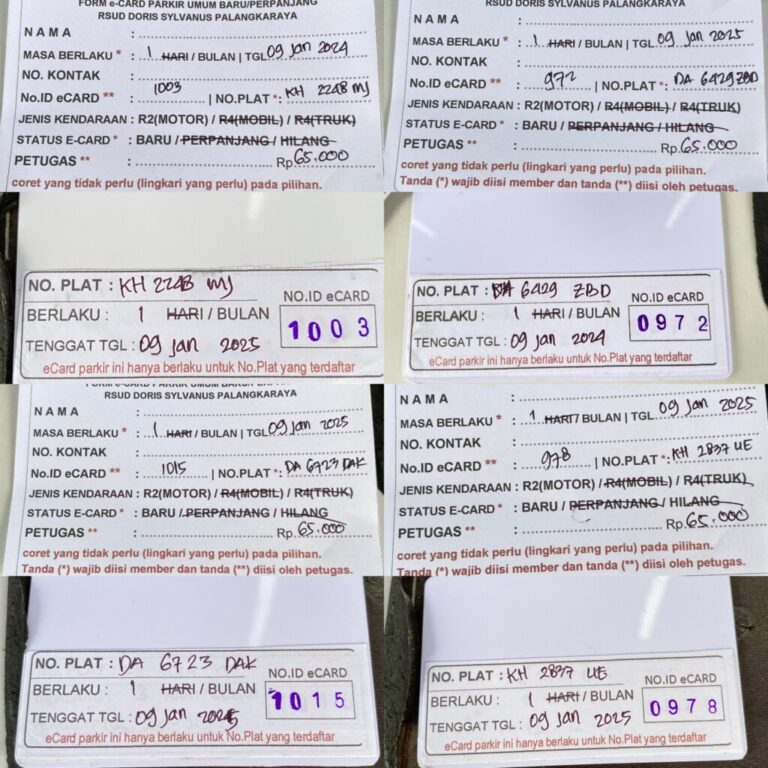 FORM e-CARD PARKIR UMUM BARU/PERPANJANG
RSUD DORIS SYLVANUS PALANGKARAYA
N A M A :
MASA BERLAKU * : 1 HARI / BULAN | TGL. 09 Jan 2024
NO. KONTAK :
No.ID eCARD ** : 1003 | NO.PLAT *: KH 2248 MJ
JENIS KENDARAAN : R2(MOTOR) / R4(MOBIL) / R4(TRUK)
STATUS E-CARD * : BARU / PERPANJANG / HILANG
PETUGAS ** : Rp. 65.000
coret yang tidak perlu (lingkari yang perlu) pada pilihan.
RSUD DORIS SYLVANUS PALANGKARAYA
N A M A :
MASA BERLAKU * : 1 HARI / BULAN | TGL. 09 Jan 2025
NO. KONTAK :
No.ID eCARD ** : 972 | NO.PLAT *: DA 6429 ZBD
JENIS KENDARAAN : R2(MOTOR) / R4(MOBIL) / R4(TRUK)
STATUS E-CARD * : BARU / PERPANJANG / HILANG
PETUGAS ** : Rp. 65.000
coret yang tidak perlu (lingkari yang perlu) pada pilihan.
Tanda (*) wajib diisi member dan tanda (**) diisi oleh petugas.
NO. PLAT : KH 2248 MJ
BERLAKU : 1 HARI / BULAN
TENGGAT TGL : 09 Jan 2025
NO.ID eCARD
1003
eCard parkir ini hanya berlaku untuk No.Plat yang terdaftar
NO. PLAT : DA 6429 ZBD
BERLAKU : 1 HARI / BULAN
TENGGAT TGL : 09 Jan 2024
NO.ID eCARD
0972
eCard parkir ini hanya berlaku untuk No.Plat yang terdaftar
RSUD DORIS SYLVANUS PALANGKARAYA
N A M A :
MASA BERLAKU * : 1 HARI / BULAN | TGL. 09 Jan 2025
NO. KONTAK :
No.ID eCARD ** : 1015 | NO.PLAT *: DA 6723 DAK
JENIS KENDARAAN : R2(MOTOR) / R4(MOBIL) / R4(TRUK)
STATUS E-CARD * : BARU / PERPANJANG / HILANG
PETUGAS ** : Rp. 65.000
coret yang tidak perlu (lingkari yang perlu) pada pilihan.
Tanda (*) wajib diisi member dan tanda (**) diisi oleh petugas.
N A M A :
MASA BERLAKU * : 1 HARI / BULAN | TGL. 09 Jan 2025
NO. KONTAK :
No.ID eCARD ** : 978 | NO.PLAT *: KH 2837 UE
JENIS KENDARAAN : R2(MOTOR) / R4(MOBIL) / R4(TRUK)
STATUS E-CARD * : BARU / PERPANJANG / HILANG
PETUGAS ** : Rp. 65.000
coret yang tidak perlu (lingkari yang perlu) pada pilihan.
Tanda (*) wajib diisi member dan tanda (**) diisi oleh petugas.
NO. PLAT : DA 6723 DAK
BERLAKU : 1 HARI / BULAN
TENGGAT TGL : 09 Jan 2025
NO.ID eCARD
1015
eCard parkir ini hanya berlaku untuk No.Plat yang terdaftar
NO. PLAT : KH 2837 UE
BERLAKU : 1 HARI / BULAN
TENGGAT TGL : 09 Jan 2025
NO.ID eCARD
0978
eCard parkir ini hanya berlaku untuk No.Plat yang terdaftar